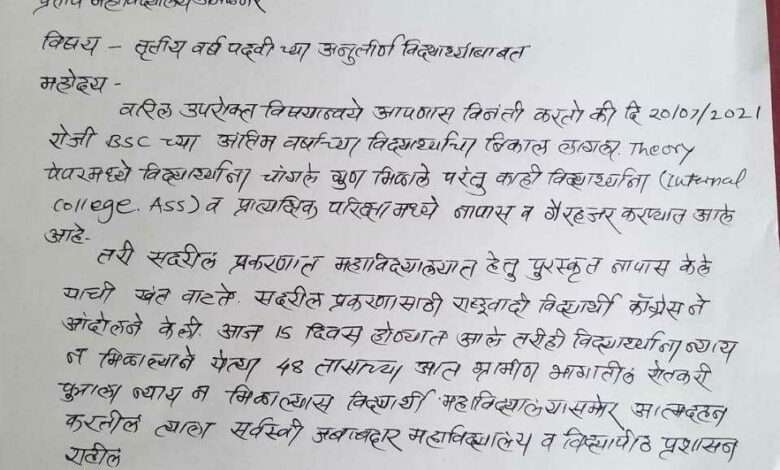 प्रताप महाविद्यालय अमळनेर
विषय - तृतीय वर्ष पदवी च्या अनुत्तीर्ण विद्यार्थ्यांबाबत
महोदय -
वरिल उपरोक्त विषयान्वये आपणास विनंती करतो की दि 20/07/2021
रोजी BSC च्या अंतिम वर्षाच्या विद्यार्थ्यांचा निकाल लागला. Theory
पेपरमध्ये विद्यार्थ्यांना चांगले गुण मिळाले परंतु काही विद्यार्थ्यांना (Internal
College. Ass) व प्रात्यक्षिक परिक्षा मध्ये नापास व गैरहजर करण्यात आले
आहे-
तरी सदरील प्रकरणात महाविद्यालयात हेतु पुरस्कृत नापास केले
याची खंत वाटते. सदरील प्रकरणासाठी राष्ट्रवादी विद्यार्थी काँग्रेस ने
आंदोलने केली. आज 15 दिवस होण्यात आले तरीही विद्यार्थ्यांना न्याय
न मिळाल्याने येत्या 48 तासाच्या आत ग्रामीण भागातील शेतकरी
पुत्राला न्याय न मिळाल्यास विद्यार्थी महाविद्यालयासमोर आत्मदहन
करतील त्याला सर्वस्वी जबाबदार महाविद्यालय व विद्यापीठ प्रशासन
राहील